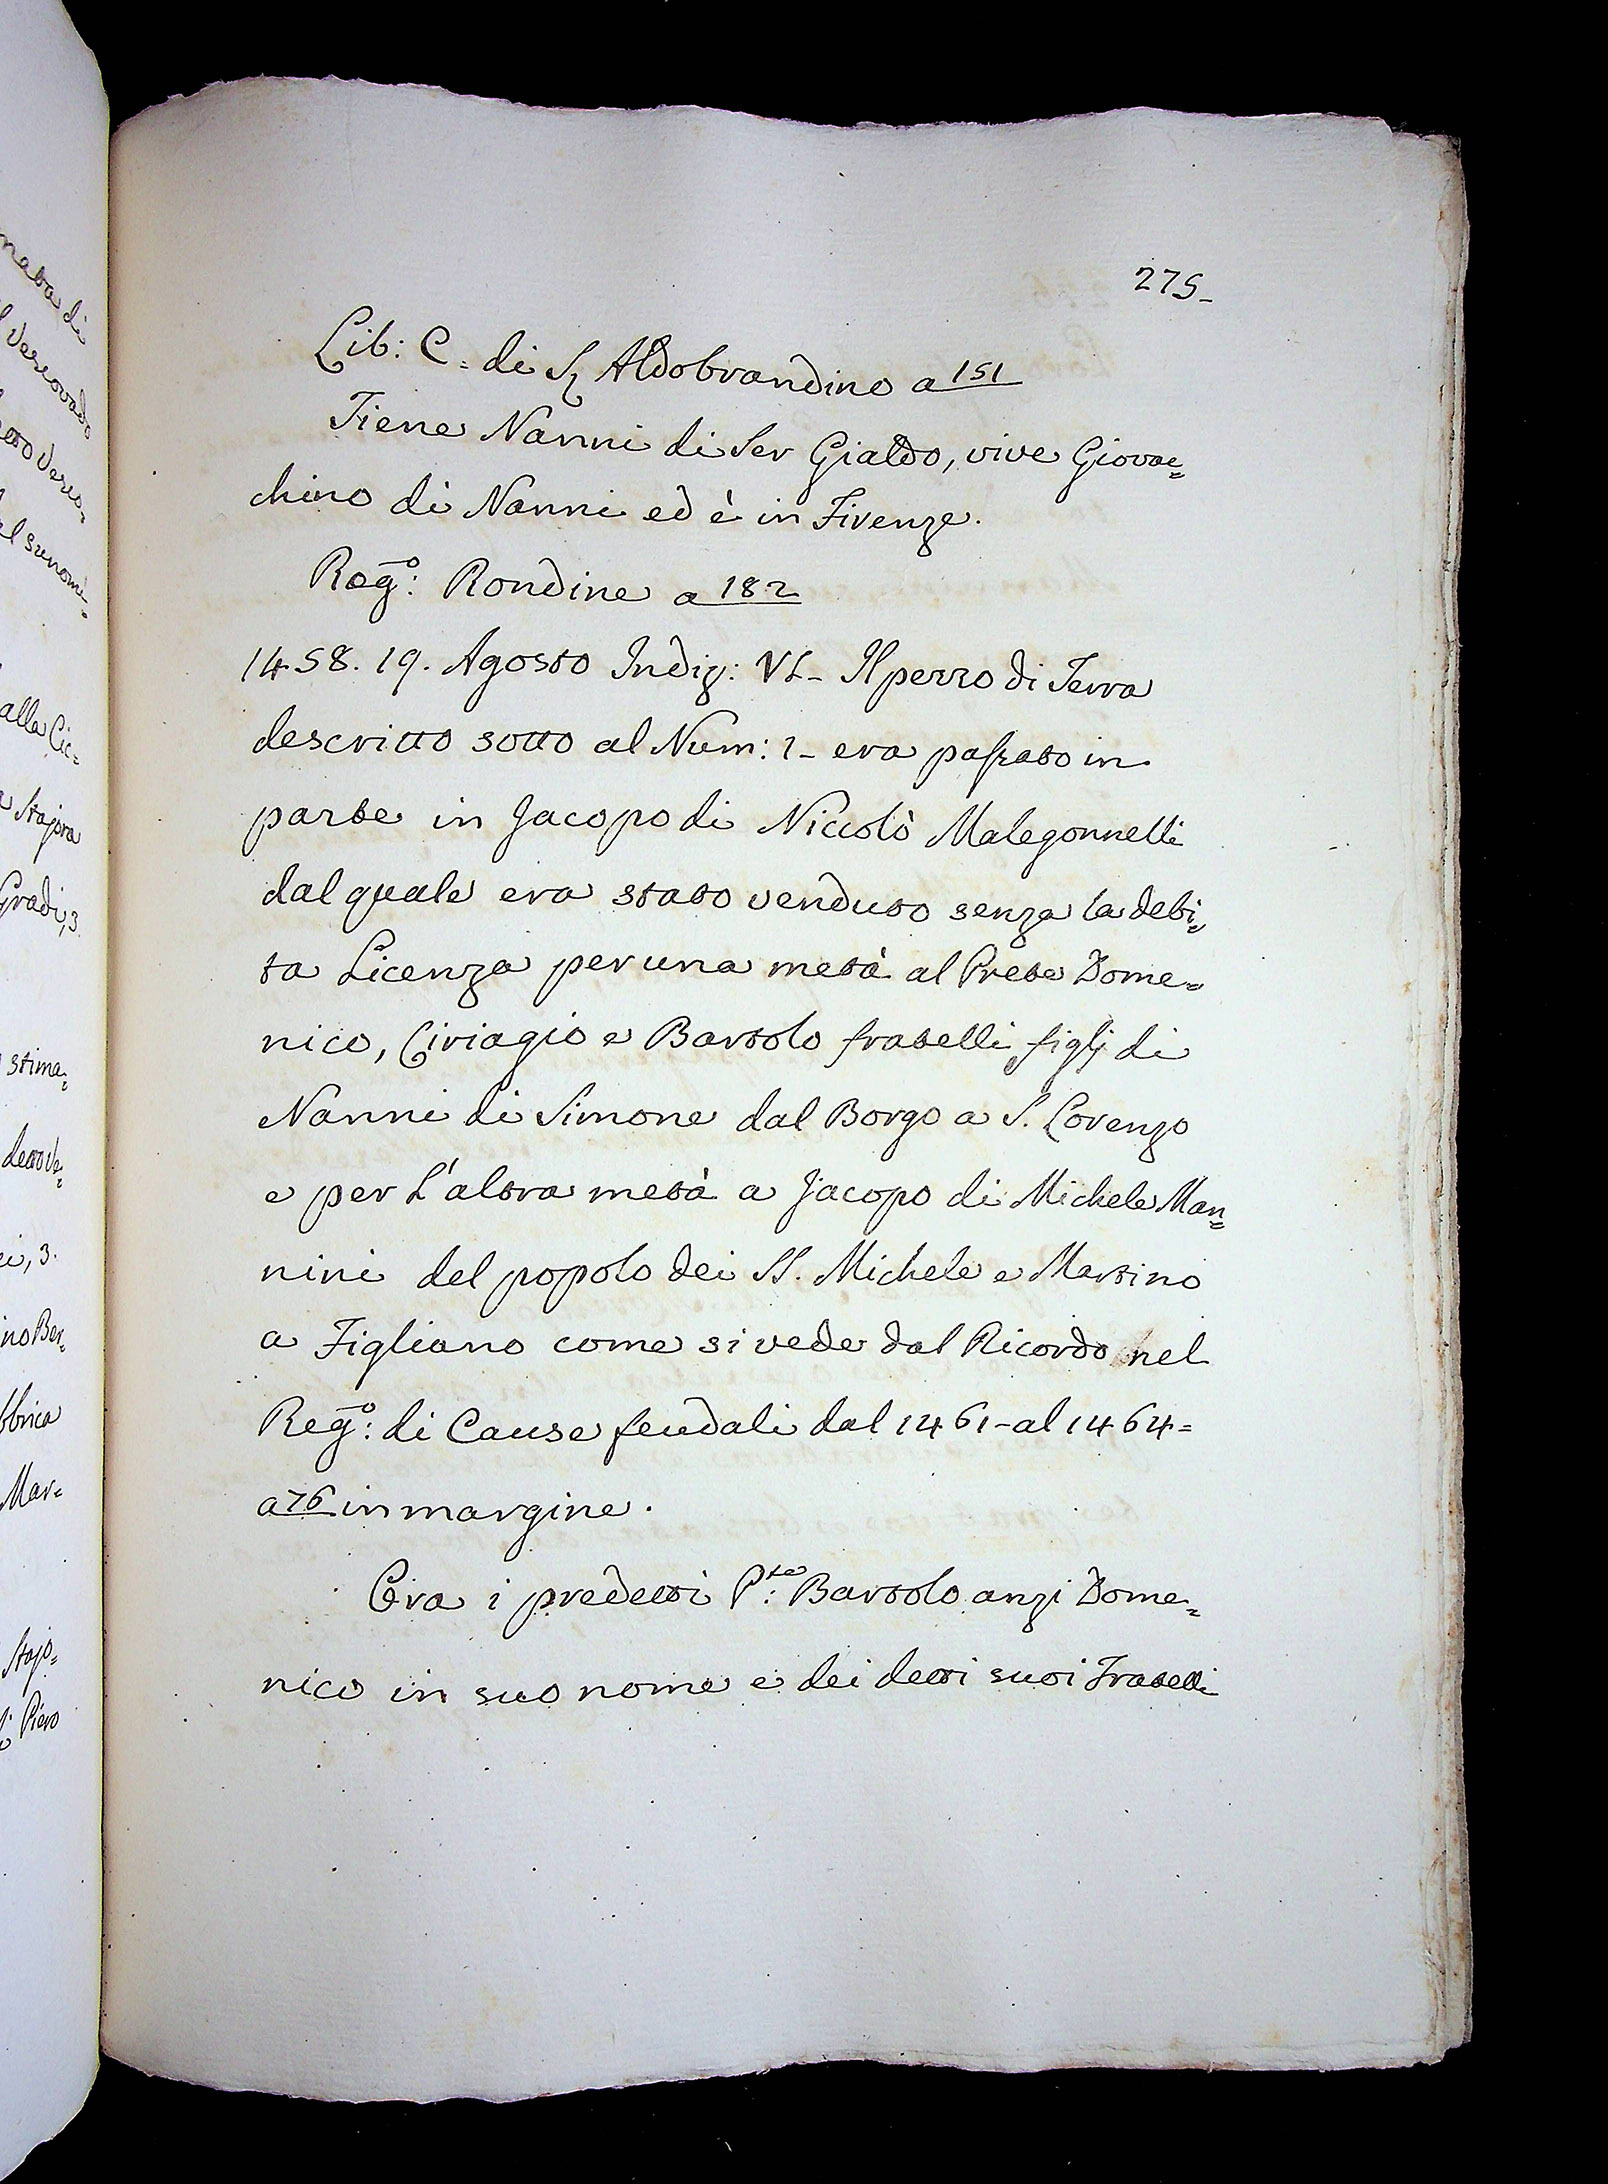 275-
Lib: C = di S. Aldobrandino a 151
Tiene Nanni di Ser Gialdo, vive Giovac=
chino di Nanni ed è in Firenze.
Reg.º: Rondine a 182
1458. 19. Agosto Indiz: VI- Il pezzo di Terra
descritto sotto al Num: 1- era passato in
parte in Jacopo di Niccolò Malegonnelli
dal quale era stato venduto senza la debi=
ta Licenza per una metà al Prete Dome=
nico, Ciriagio e Bartolo fratelli figlj di
Nanni di Simone dal Borgo a S. Lorenzo
e per L'altra metà a Jacopo di Michele Man=
nini del popolo dei SS. Michele e Martino
a Figliano come si vede dal Ricordo nel
Reg.º: di Cause feudali dal 1461- al 1464=
a 76 in margine.
Ora i predetti P.te: Bartolo anzi Dome=
nico in suo nome e dei detti suoi Fratelli
alla Cic=
a Stajora
Gradi, 3.
stima=
detto Ve=
ei, 3.
ino Ber=
bbrica
Mar=
Stajo=
Piero